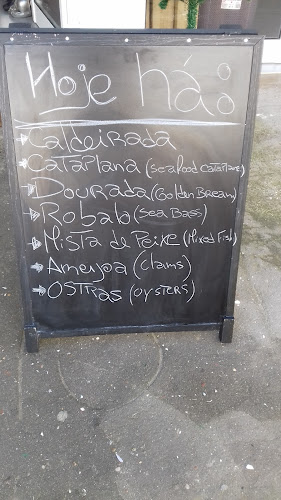 Hoje há:
Caldeirada
Cataplana (seafood cataplana)
Dourada (Golden Bream)
Robalo (Sea Bass)
Mista de Peixe (Mixed Fish)
Ameijoa (Clams)
Ostras (oysters)